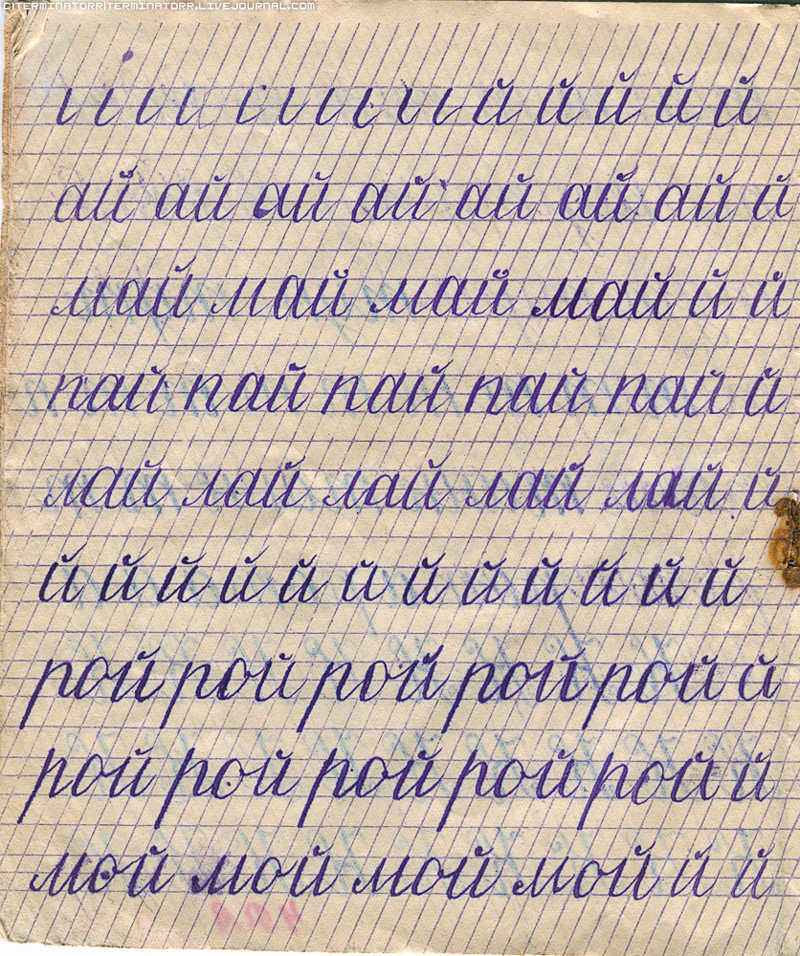 (C)TERMINATORR|TERMINATORR.LIVEJOURNAL.COM
ı ı ı ı ı ı ı ı ı ı ı й й й й й
ай ай ай ай ай ай ай й
май май май май й й
пай пай пай пай пай й
лай лай лай лай лай й
й й й й й й й й й й й й
рой рой рой рой рой й
рой рой рой рой рой й
мой мой мой мой й й